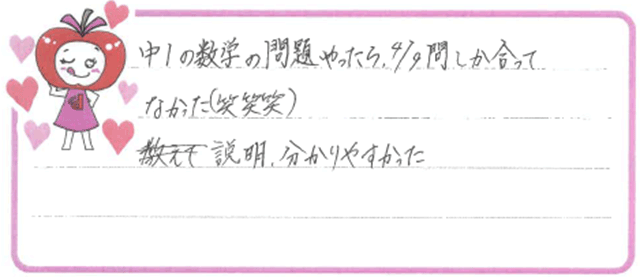 中1の数学の問題やったら、4/9問しか合って
なかった(笑笑笑)
教えて 説明、分かりやすかった